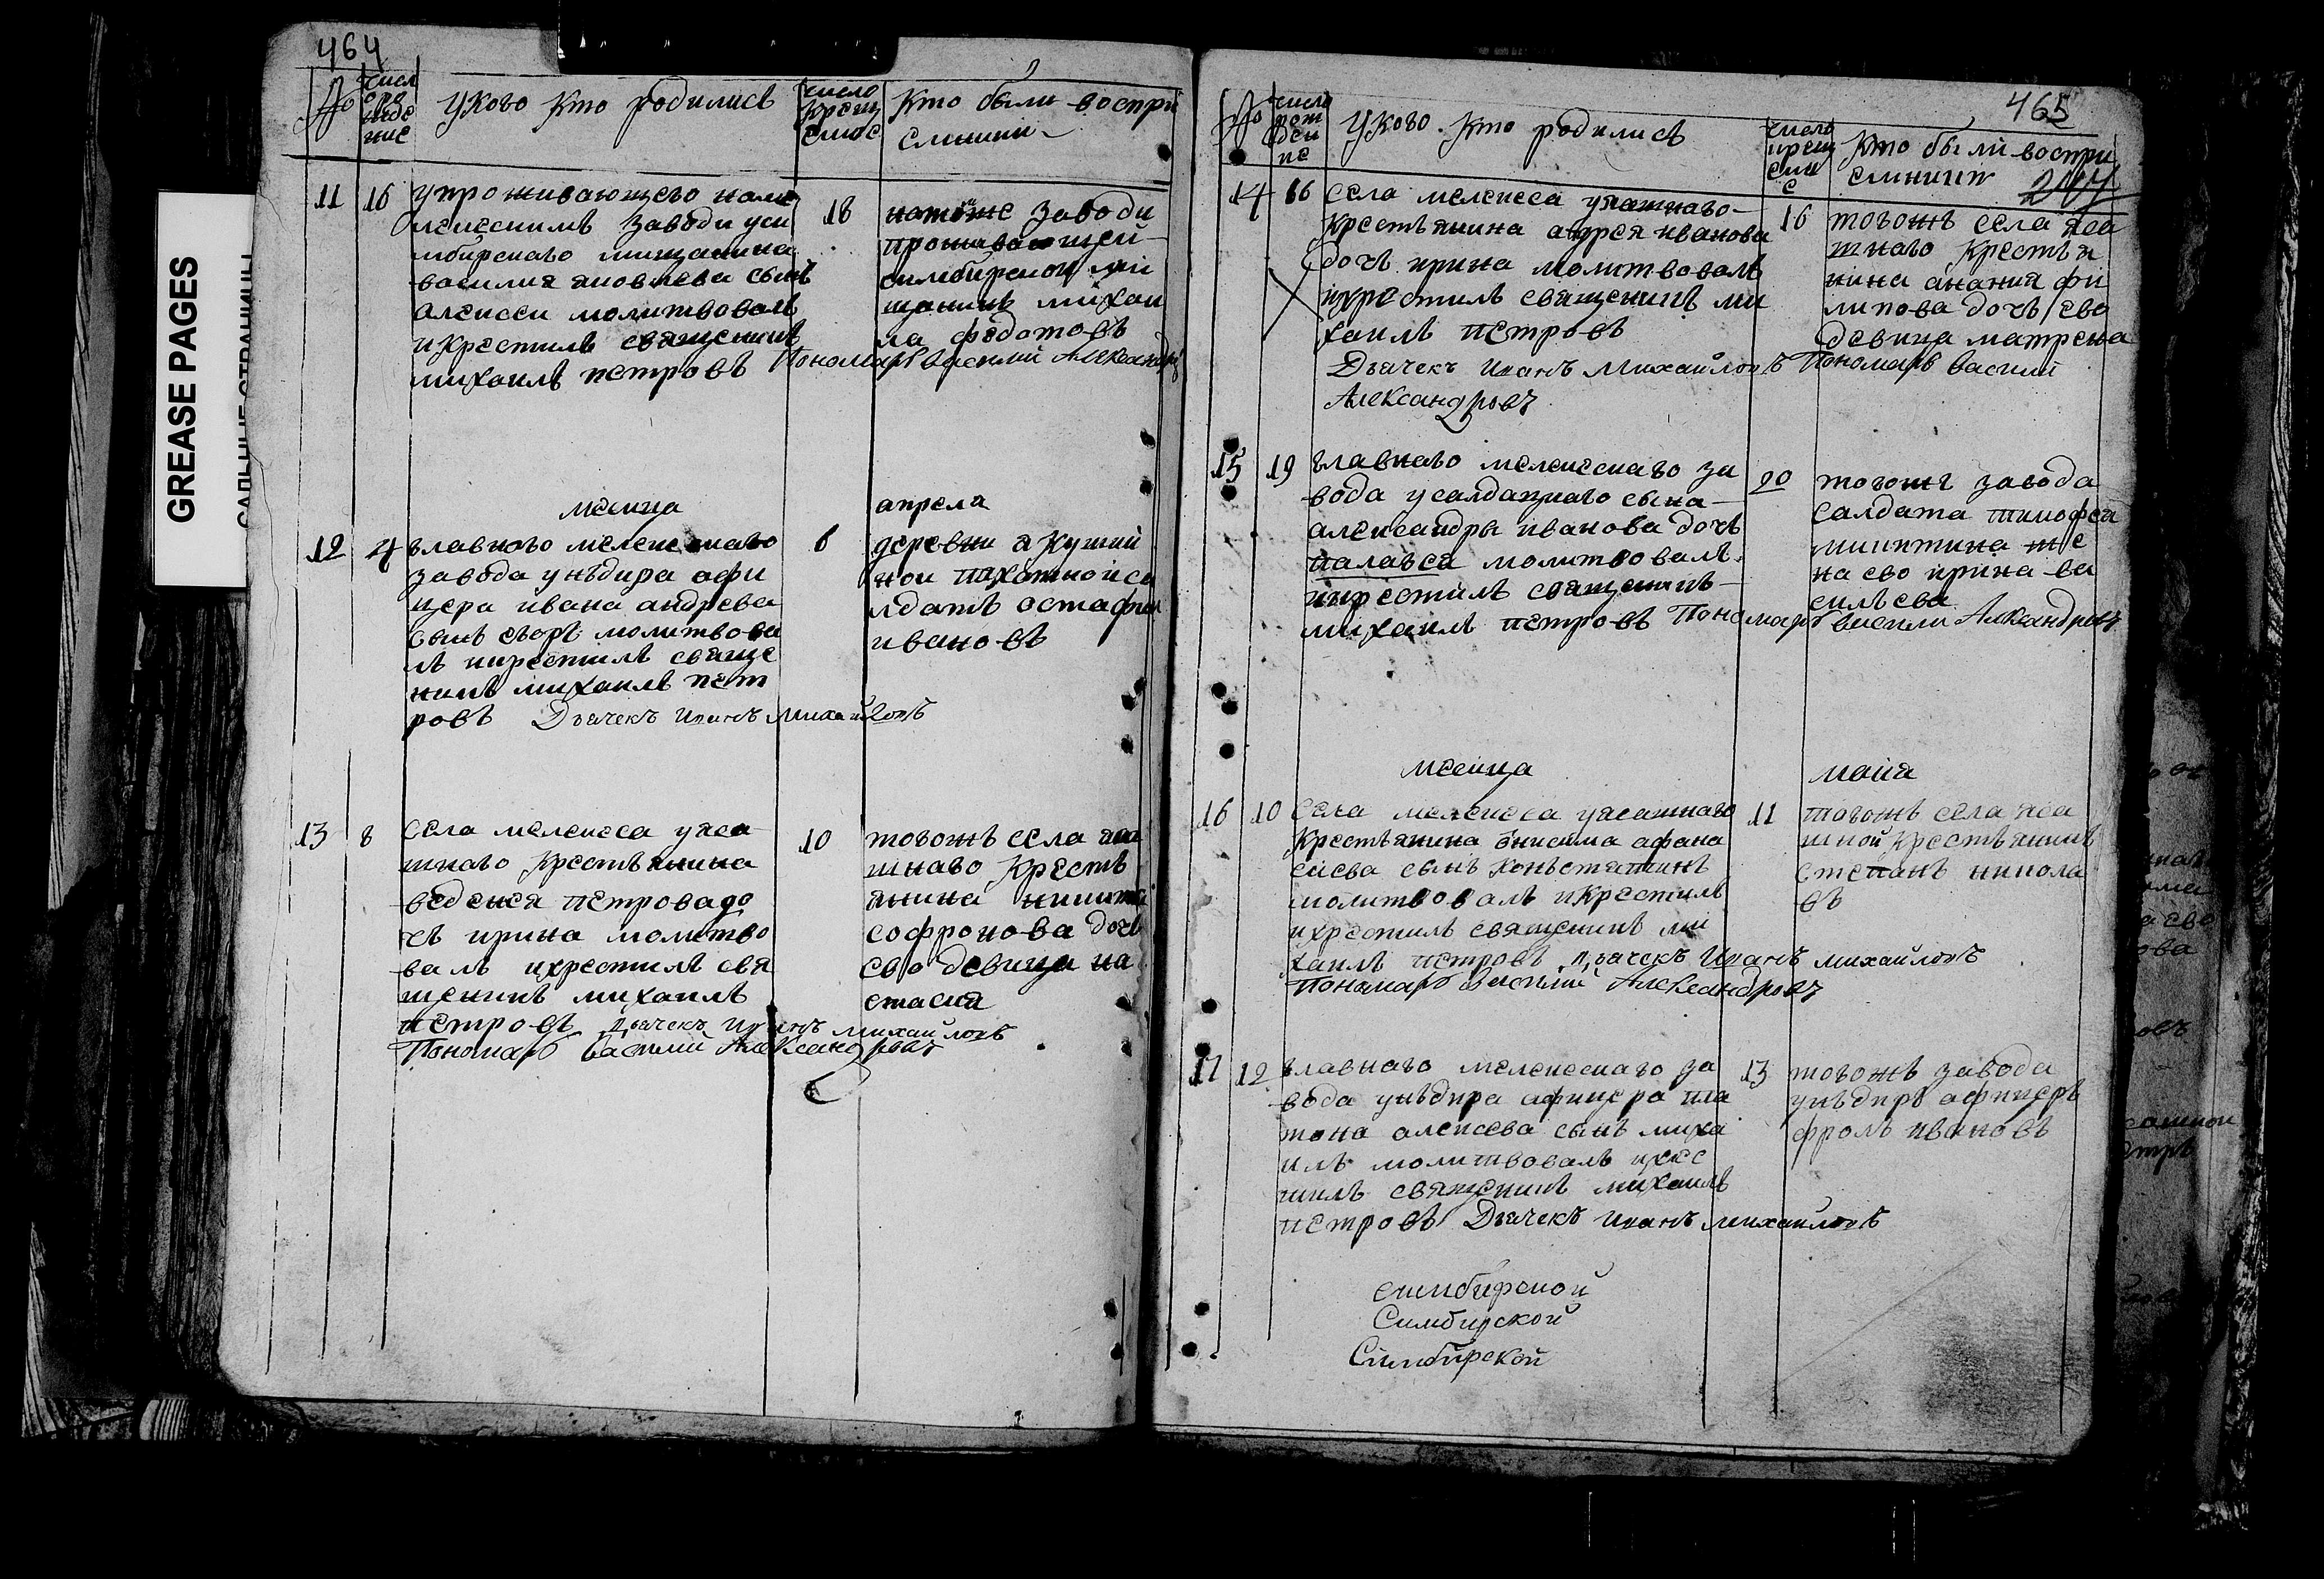 GREASE PAGES
464
№
число рождение
У кого кто родились
число крещение
Кто были восприемники
11 16 у проживающего на ме
лекеским заводи у си
мбирскаго мищанина
василия яковлева сынъ
алексеи молитвовалъ
и крестилъ священикъ
михаилъ петровъ Пономарь Василий Александровъ
18 на томже заводи
проживающей
симбирской ми
щанинъ михаи
ла федотовъ
месица апреля
12 4 главного мелекескаго
завода унъдира афи
цера ивана андрева
сынъ егоръ молитвова
лъ икрестилъ свяще
никъ михаилъ пет
ровъ Дьячекъ Иванъ Михайловъ
6 деревни
пахотной со
лдатъ остафии
ивановъ
13 8 села мелекеса у яса
шнаго крестьянина
веденея петрова до
чъ ирина молитво
валъ икрестилъ свя
щеникъ михаилъ
петровъ Дьячекъ Иванъ Михайловъ
Пономарь Василий Александровъ
10 тогожъ села яса
шнаго кресть
янина никиты
софронова дочъ
ево девица на
стасия
465
№
число рождение
У кого кто родилисъ
число крещение
Кто были восприемники
14 16 села мелекеса у яшашнаго
крестьянина андрея иванова
дочъ ирина молитвовалъ
икрестилъ священикъ ми
хаилъ петровъ
Дьячекъ Иванъ Михайловъ Пономарь Василий
Александровъ
16 тогожъ села яса
шнаго крестья
нина анания фи
липова дочъ ево
девица матрена
15 19 главнаго мелекескаго за
вода у салдацкаго сына
александры иванова дочъ
палагея молитвовалъ
икрестилъ священикъ
михаилъ петровъ Пономарь Василий Александровъ
20 тогожъ завода
салдата тимофея
микитина же
на ево ирина ва
сильева
месица майя
16 10 села мелекеса у ясашнаго
крестьянина онисима афана
сиева сынъ констянтинъ
молитвовалъ икрестилъ
икрестилъ священикъ ми
хаилъ петровъ Дьячекъ Иванъ Михайловъ
Пономарь Василий Александровъ
11 тогожъ села яса
шной крестьянинъ
степанъ никола
въ
17 12 главнаго мелекескаго за
вода унъдира афицера пла
тона алексеева сынъ миха
илъ молитвовалъ икре
тилъ священикъ михаилъ
петровъ Дьячекъ Иванъ Михайловъ
13 тогожъ завода
унъдиръ афицеръ
фролъ ивановъ
симбирской
Симбирской
Симбирской